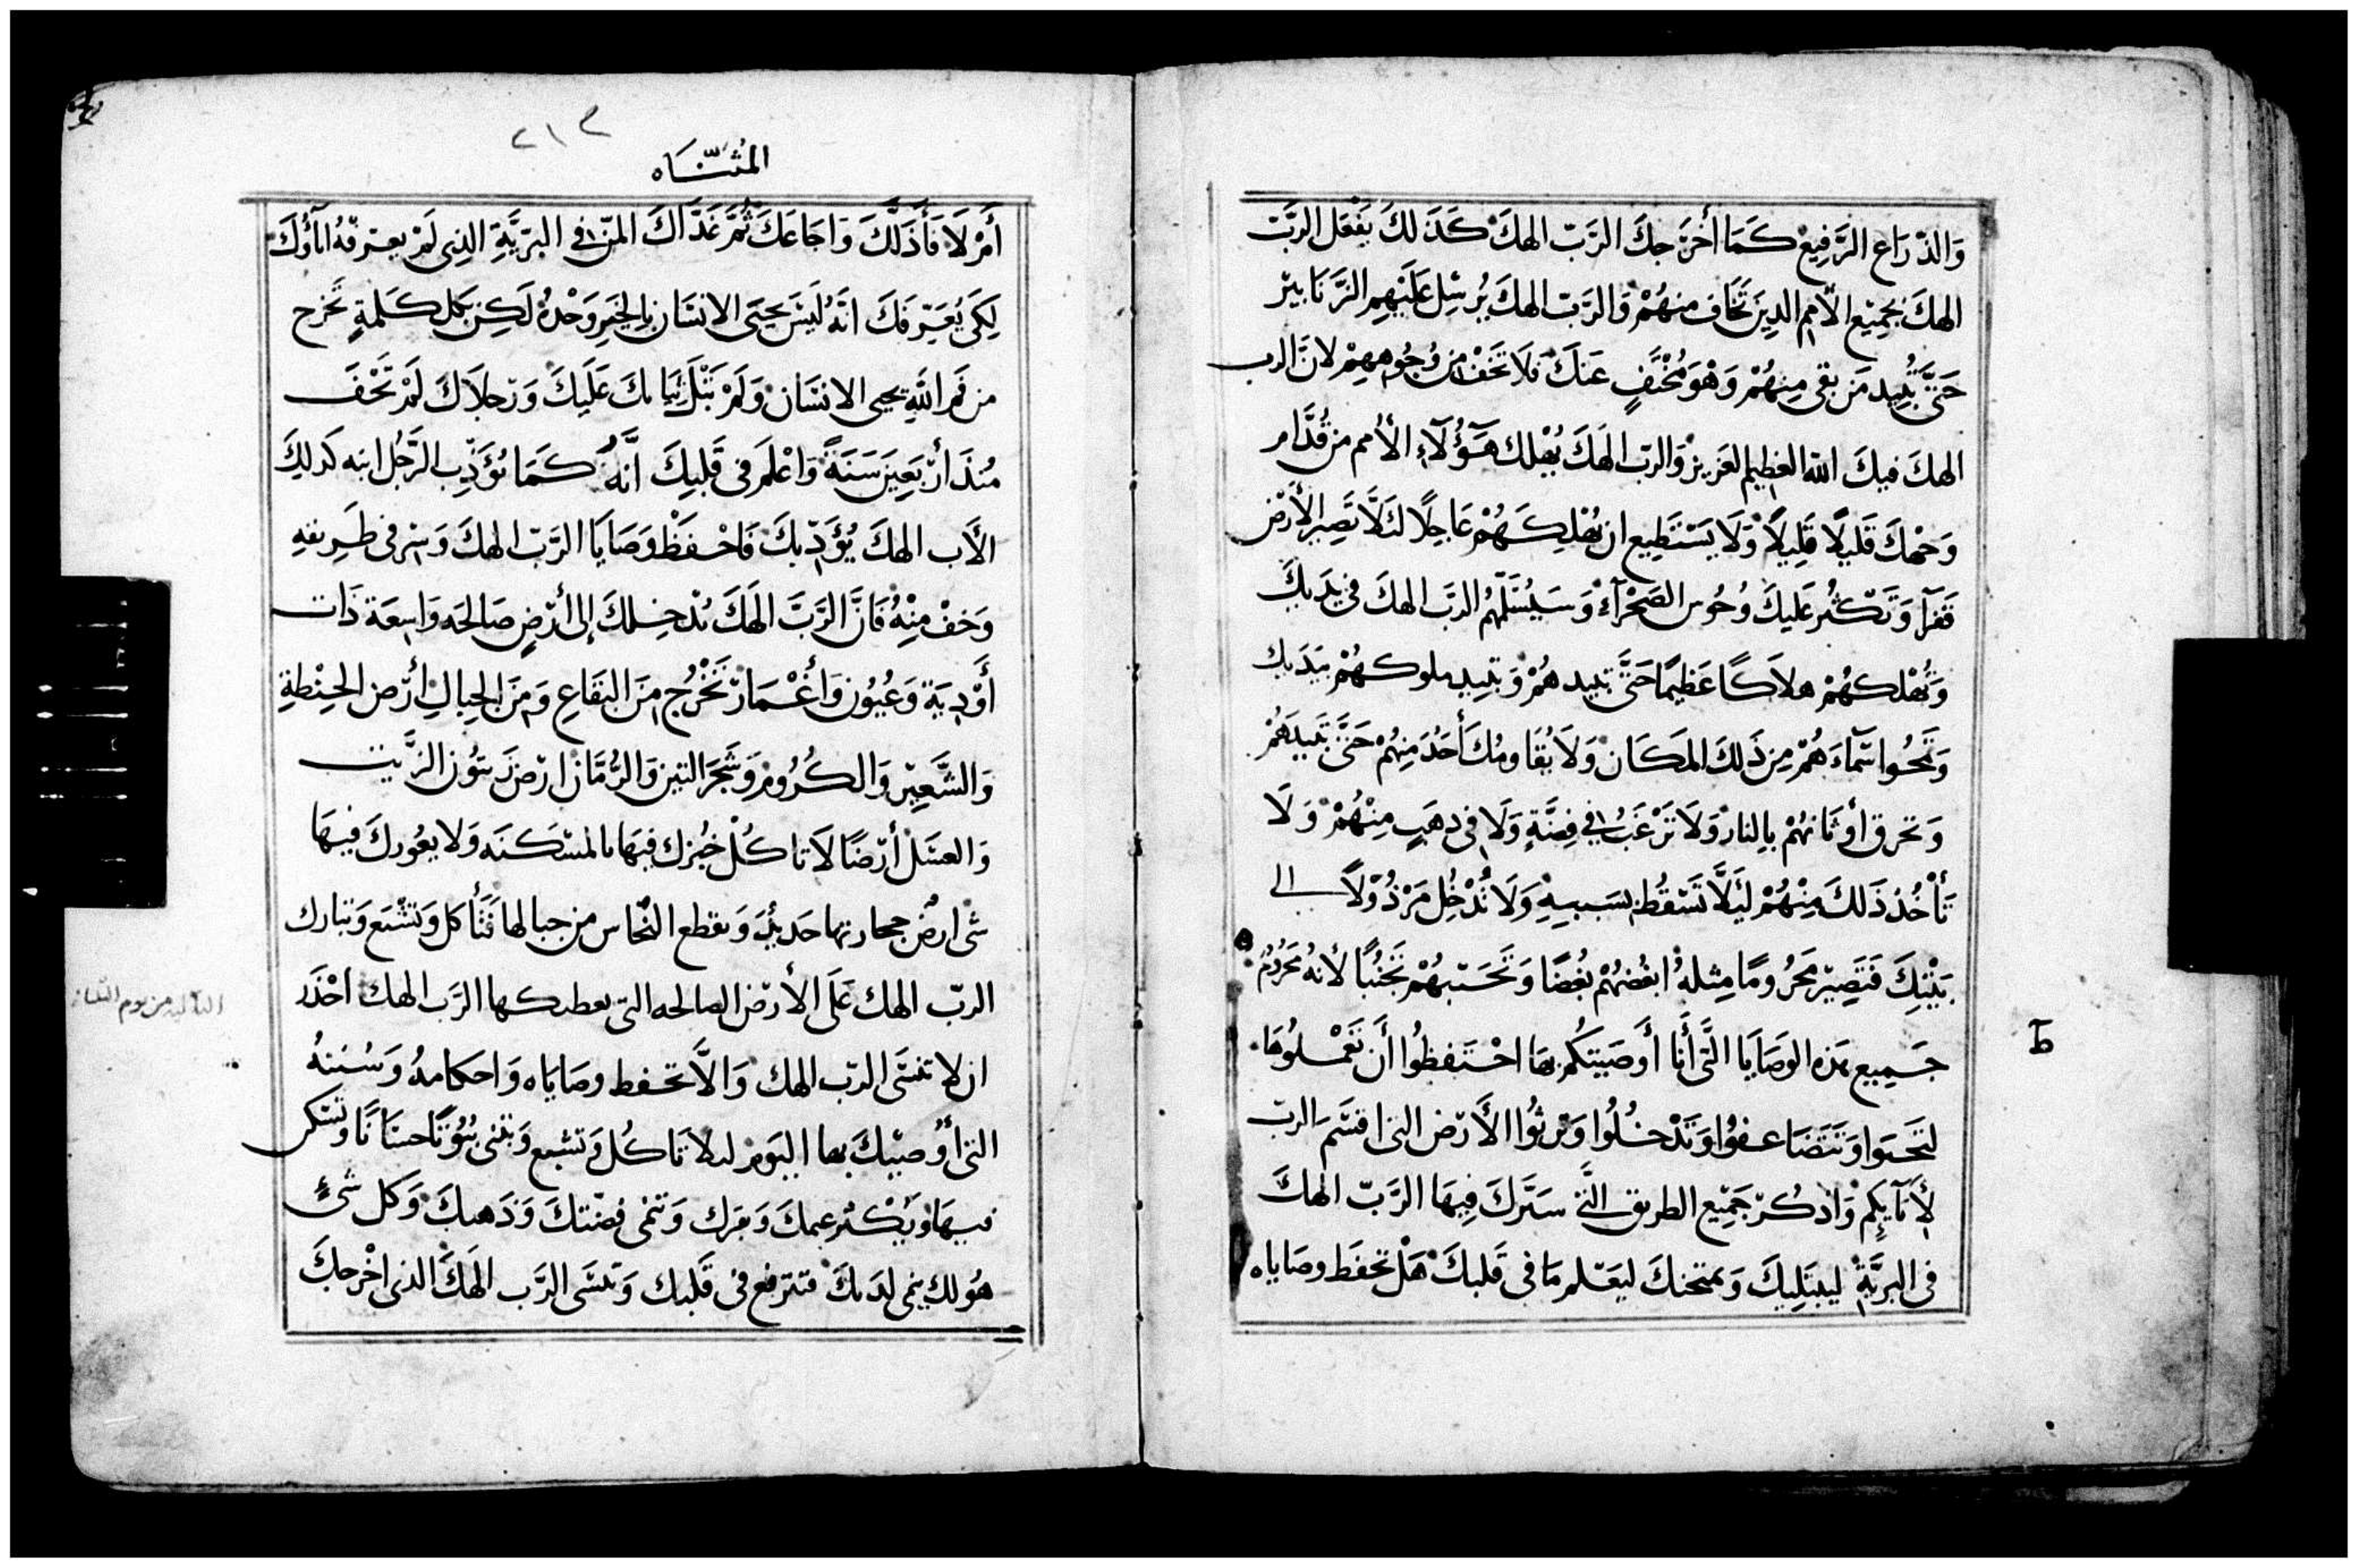 وَالذْرَاعِ الرَّفِيعْ كَمَا أَخرَجكَ الرَّبّ الهكَ كَذَلكَ يَفْعَل الرَّبّ
الهكَ بجَمِيْع الأمم الذِينَ تَخَاف منهُمْ وَالرَّبّ الهكَ يُرسِل عَلَيْهِم الزَّنَابير
حَتَّى تُبيد مَن بقى مِنهُمْ وَهْوَ مُخْتَفٍ عَنكَ فلاَ تَخَفْ مِن وُجُوههِمْ لانَّ الرب
الهكَ فيكَ اللّه العَظِيم العَزيز وَالربّ الهَكَ يُهْلك هَؤُلآءِ الأُمم من قُدَّام
وَجهكَ قَليلًا قَلِيلاً وَلَا يَسْتَطِيع ان يُهْلِكَهُمْ عَاجِلًا لئَلَّا تَصِير الأَرْض
قَفرَآ وَتَكْثُر عَليكَ وُحُوس الصَحْرَآءْ وَسَيُسَلّمهُم الرَّبّ الهكَ في يَدَيكَ
وَتُهْلكهُمْ هلاَكًا عَظِيمًا حَتَّى تبيدهُمْ وَتبيد ملوكهُمْ بيَدَيك
وَتَمحُوا سَّمآءَهُمْ مِن ذَلكَ المَكَان وَلاَ يُقَاومُكَ أَحَدُ مِنهُمْ حَتَّى تَبيدَهُمْ
وَتحرق أَوثانهُمْ بالِنار وَلاَ تَرْغَبُ في فِضَّةٍ وَلَا في ذهَبٍ مِنْهُمْ وَلَا
تَأخُذ ذَلكَ مِنْهُمْ لَيلَّا تَسْقُطْ بسَببهِ وَلَا تُدْخِل مَرْذُوْلاً الى
بَيْتِكَ فَتَصِيْر مَحْرُومًا مِثلهُ ابغُضهُمْ بُغضًا وَتَحَسّبهُمْ تَجَنُّبًا لأنهُ مَحرُومُ
جَمِيع هَذه الوَصَايَا الَّتى أَنَا أَوصَيتكُم بهَا احْتَفظُوا أَن تَعْمَلُوهَا
لتَحيَوا وَتَتَضَاعفوُا وَتَدْخُلُوا وَتَرثُوا الأَرْض التى اقسَم الربّ
لأَبَآيكِم وَاذكُرّ جَمِيْع الطريق التَّى سَيَّرَكَ فِيهَا الرَّبّ الهكَ
في البرِيَّة ليبتَلِيكَ وَيمتحنكَ ليَعْلم مَا في قَلبكَ هَلْ تحفَط وصَاياه
٢١٢
المُثَنَّاه
أَمْ لاَ فَأَذَلَّكَ وَاجَاعَكَ ثُمَّ غَدَّاكَ المَنّ في البرّيَّةِ الذِى لَمْ يعرفهُ ابآؤُكَ
لِكَى يُعَرّفَكَ انَّهُ لَيسَ يحيَى الانسَان بالخبزِ وَحْدهُ لَكِن بكل كَلمةٍ تَخرج
من فَم اللَّه يحيى الانسَان وَلَمْ تَبْلَ ثيَابكَ عَلَيكَ وَرْجلاَكَ لَمْ تَحْفَ
مُنذ أَربَعِيَن سَنَةً وَاعْلم في قَلبِكَ انَّهُ كَمَا يُؤَدّب الرَّجُل ابنه كَذلكَ
الرَّب الهكَ يُؤَدّبكَ فَاحْفَظْ وَصَايَا الرَّبّ الهكَ وَسْر في طَرِيقهِ
وَخفْ مِنْهُ فَانَّ الرَّبَّ الهَكَ يُدْخِلكَ إلى أَرْضٍ صَالحَه وَاسِعَة ذَات
أَوْدِيَة وَعُيُون وَأَغْمَار تَخْرُج مِنَ البقَاعِ وَمِنَ الجِبالِ أَرْض الحِنْطةِ
وَالشَّعِيْر وَالكُرُوم وَشَجَر التين وَالرُّمَّان ارْض زَيتُون الزَّيت
وَالعسَل أَرْضًا لاَ تاكُل خبُزك فيهَا بالمسْكَنَه وَلا يعُوزكَ فيهَا
شى ارضٌ حجارتها حَديدُ وَيقطع النُّحاس من جبالها فَتَأكل وَتشْبَع وَتبارك
الربّ الهك عَلَى الأَرْض الصالحه التى يعطيكها الرَّب الهك احْذَر
ان لا تنسَى الربّ الهك وَالَّا تحفط وصَايَاه وَاحكامهُ وَسُننهُ
التى أُوصيْكَ بها اليَوم ليلا تَاكُل وَتشبع وَتبنى بُيُوتًا حسَانًا وَتسْكن
فيهَا وَيَكْثر غنمكَ وَبقرك وَتنمى فضّتكَ وَذَهبكَ وَكل شىءٍ
هُو لك ينمى لدَيكَ فتترفع في قَلبك وَتنسَى الرَّب الهَكَ الذى اخْرجكَ